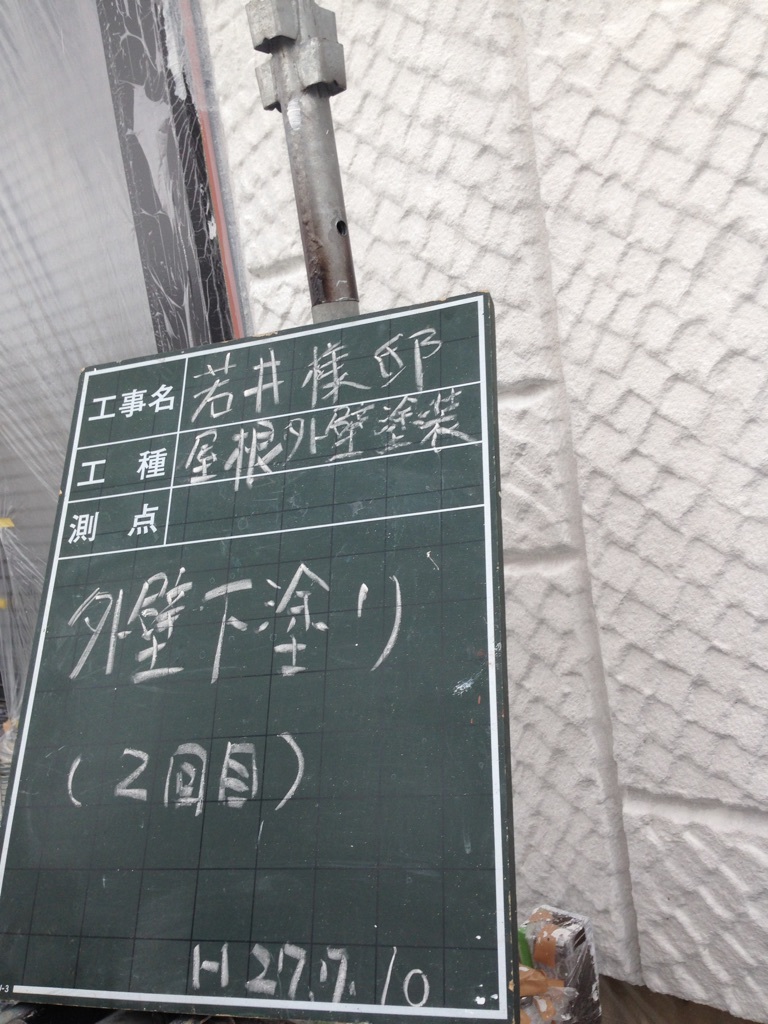 工事名 若井様邸
工種 屋根外壁塗装
測点
外壁下塗り
(2回目)
H27.7.10